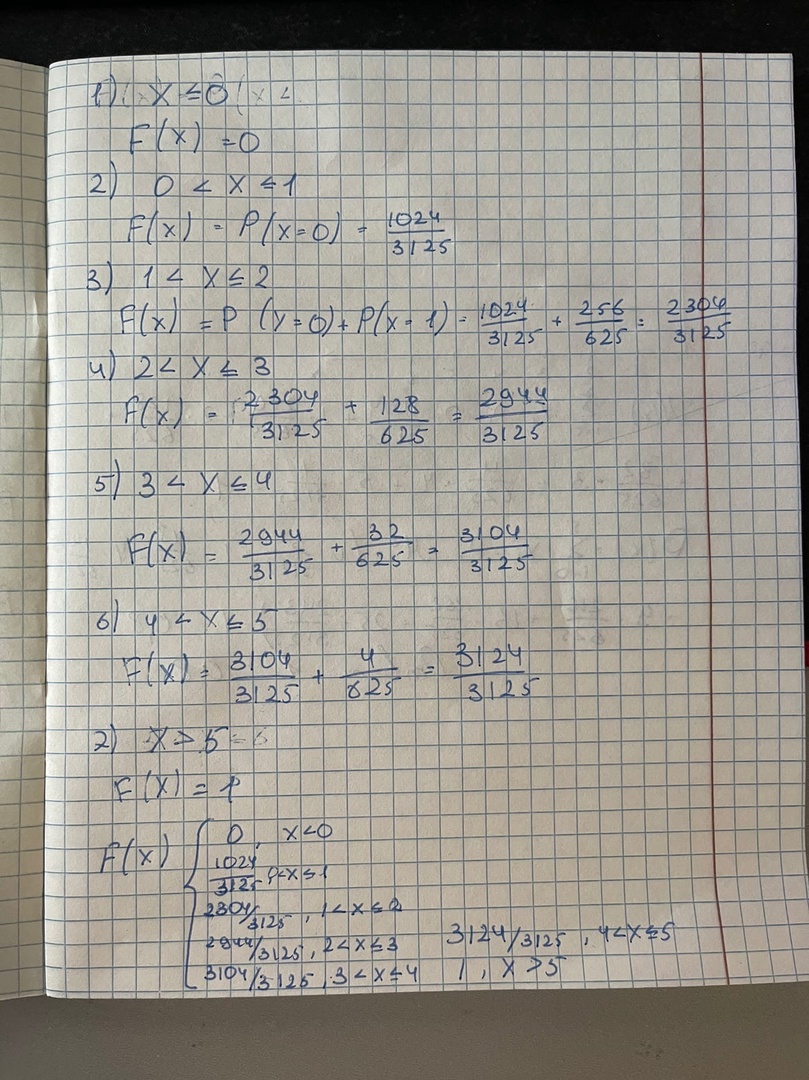 1) x ≤ 0 (x <
F(x) = 0
2) 0 < x ≤ 1
F(x) = P(x=0) = 1024/3125
3) 1 < x ≤ 2
F(x) = P (x=0) + P(x=1) = 1024/3125 + 256/625 = 2304/3125
4) 2 < x ≤ 3
F(x) = 2304/3125 + 128/625 = 2944/3125
5) 3 < x ≤ 4
F(x) = 2944/3125 + 32/625 = 3104/3125
6) 4 < x ≤ 5
F(x) = 3104/3125 + 4/625 = 3124/3125
7) x > 5
F(x) = 1
F(x) { 0, x<0
1024/3125, 0<x≤1
2304/3125, 1<x≤2
2944/3125, 2<x≤3
3104/3125, 3<x≤4
3124/3125, 4<x≤5
1, x>5